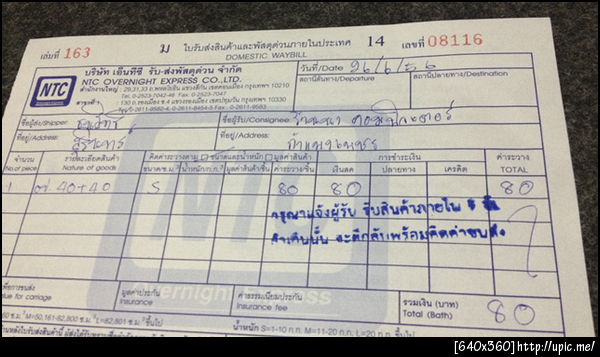 เล่มที่ 163 ม ใบรับส่งสินค้าและพัสดุด่วนภายในประเทศ 14 เลขที่ 08116
DOMESTIC WAYBILL
NTC
บริษัท เอ็นทีซี รับ-ส่งพัสดุด่วน จำกัด
NTC OVERNIGHT EXPRESS CO.,LTD.
วันที่/Date 26/6/56
สถานีต้นทาง/Departure สถานีปลายทาง/Destination
ชื่อผู้ส่ง/Shipper
ชื่อผู้รับ/Consignee
ที่อยู่/Address:
ที่อยู่/Address: กำแพงเพชร
จำนวน รายละเอียดสินค้า คิดค่าระวางตาม ขนาดและน้ำหนัก มูลค่าสินค้า การชำระเงิน ค่าระวาง
No.of piece Nature of goods ขนาด ซ.ม. น้ำหนัก ก.ก. มูลค่าสินค้า ค่าระวาง/ชิ้น เงินสด ปลายทาง เครดิต TOTAL
1 40+40 S 80 80 80
กรุณาแจ้งผู้รับ รับสินค้าภายใน วัน
ถ้าเกินนั้น จะตีกลับพร้อมคิดค่าขนส่ง
NTC
Overnight Express
เพื่อการขนส่ง มูลค่าประกัน ค่าธรรมเนียมประกัน รวมเงิน (บาท)
value for carriage Insurance Insurance fee Total (Bath) 80
น้ำหนัก S=1-10 ก.ก. M=11-20 ก.ก. L=20 ก.ก. ขึ้นไป
[640x360]http://upic.me/